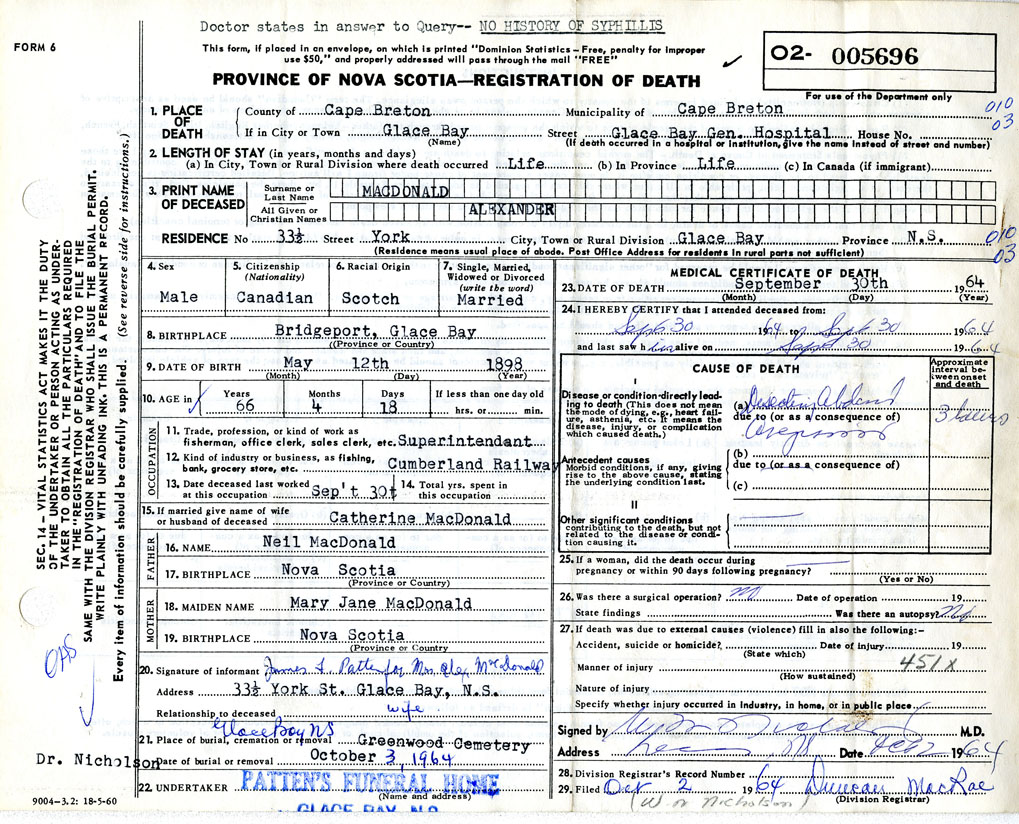 Doctor states in answer to Query-- NO HISTORY OF SYPHILLIS
FORM 6
This form, if placed in an envelope, on which is printed "Dominion Statistics – Free, penalty for improper
use $50," and properly addressed will pass through the mail "FREE"
O2- 005696
PROVINCE OF NOVA SCOTIA—REGISTRATION OF DEATH
For use of the Department only
010
03
1. PLACE OF DEATH
County of Cape Breton Municipality of Cape Breton
If in City or Town Glace Bay Street Glace Bay Gen. Hospital House No.
(Name) (If death occurred in a hospital or institution, give the name instead of street and number)
2. LENGTH OF STAY (in years, months and days)
(a) In City, Town or Rural Division where death occurred Life (b) In Province Life (c) In Canada (if immigrant)
3. PRINT NAME OF DECEASED
Surname or Last Name MACDONALD
All Given or Christian Names ALEXANDER
RESIDENCE No 33½ Street York City, Town or Rural Division Glace Bay Province N.S.
010
03
(Residence means usual place of abode. Post Office Address for residents in rural parts not sufficient)
4. Sex
Male
5. Citizenship
(Nationality)
Canadian
6. Racial Origin
Scotch
7. Single, Married,
Widowed or Divorced
(write the word)
Married
8. BIRTHPLACE Bridgeport, Glace Bay
(Province or Country)
9. DATE OF BIRTH May 12th 1898
(Month) (Day) (Year)
10. AGE in
Years Months Days If less than one day old
66 4 18 hrs. or min.
OCCUPATION
11. Trade, profession, or kind of work as
fisherman, office clerk, sales clerk, etc. Superintendant
12. Kind of industry or business, as fishing,
bank, grocery store, etc. Cumberland Railway
13. Date deceased last worked
at this occupation Sep't 30t
14. Total yrs. spent in
this occupation
15. If married give name of wife
or husband of deceased Catherine MacDonald
FATHER
16. NAME Neil MacDonald
17. BIRTHPLACE Nova Scotia
(Province or Country)
MOTHER
18. MAIDEN NAME Mary Jane MacDonald
19. BIRTHPLACE Nova Scotia
(Province or Country
20. Signature of informant James L Patten for Mrs Alex McDonald
Address 33½ York St. Glace Bay, N.S.
Relationship to deceased wife
Glace Bay NS
21. Place of burial, cremation or removal Greenwood Cemetery
Date of burial or removal October 3, 1964
22. UNDERTAKER PATTEN'S FUNERAL HOME
(Name and address)
GLACE BAY, N.S.
MEDICAL CERTIFICATE OF DEATH
23. DATE OF DEATH September 30th 1964
(Month) (Day) (Year)
24. I HEREBY CERTIFY that I attended deceased from:
Sept 30 1964 to Sept 30 1964
and last saw him alive on Sept 30 1964
CAUSE OF DEATH
Approximate
interval be-
tween onset
and death
I
Disease or condition directly lead-
ing to death (This does not mean
the mode of dying, e.g., heart fail-
ure, asthenia, etc. It means the
disease, injury, or complication
which caused death.)
(a)
due to (or as a consequence of)
3 hours
Antecedent causes
Morbid conditions, if any, giving
rise to the above cause, stating
the underlying condition last.
(b)
due to (or as a consequence of)
(c)
II
Other significant conditions
contributing to the death, but not
related to the disease or condi-
tion causing it.
25. If a woman, did the death occur during
pregnancy or within 90 days following pregnancy?
(Yes or No)
26. Was there a surgical operation? No Date of operation 19
State findings Was there an autopsy? No
27. If death was due to external causes (violence) fill in also the following:–
Accident, suicide or homicide? Date of injury 19
(State which)
Manner of injury 451X
(How sustained)
Nature of injury
Specify whether injury occurred in industry, in home, or in public place
Signed by M.D.
Address Date Oct 2 1964
28. Division Registrar's Record Number
29. Filed Oct 2 1964 Duncan MacRae
(W. N. Nicholson) (Division Registrar)
SEC. 14 – VITAL STATISTICS ACT MAKES IT THE DUTY
OF THE UNDERTAKER OR PERSON ACTING AS UNDER-
TAKER TO OBTAIN ALL THE PARTICULARS REQUIRED
IN THE "REGISTRATION OF DEATH" AND TO FILE THE
SAME WITH THE DIVISION REGISTRAR WHO SHALL ISSUE THE BURIAL PERMIT.
WRITE PLAINLY WITH UNFADING INK. THIS IS A PERMANENT RECORD.
Every item of information should be carefully supplied. (See reverse side for instructions.)
OAS
Dr. Nicholson
9004–3.2: 18-5-60